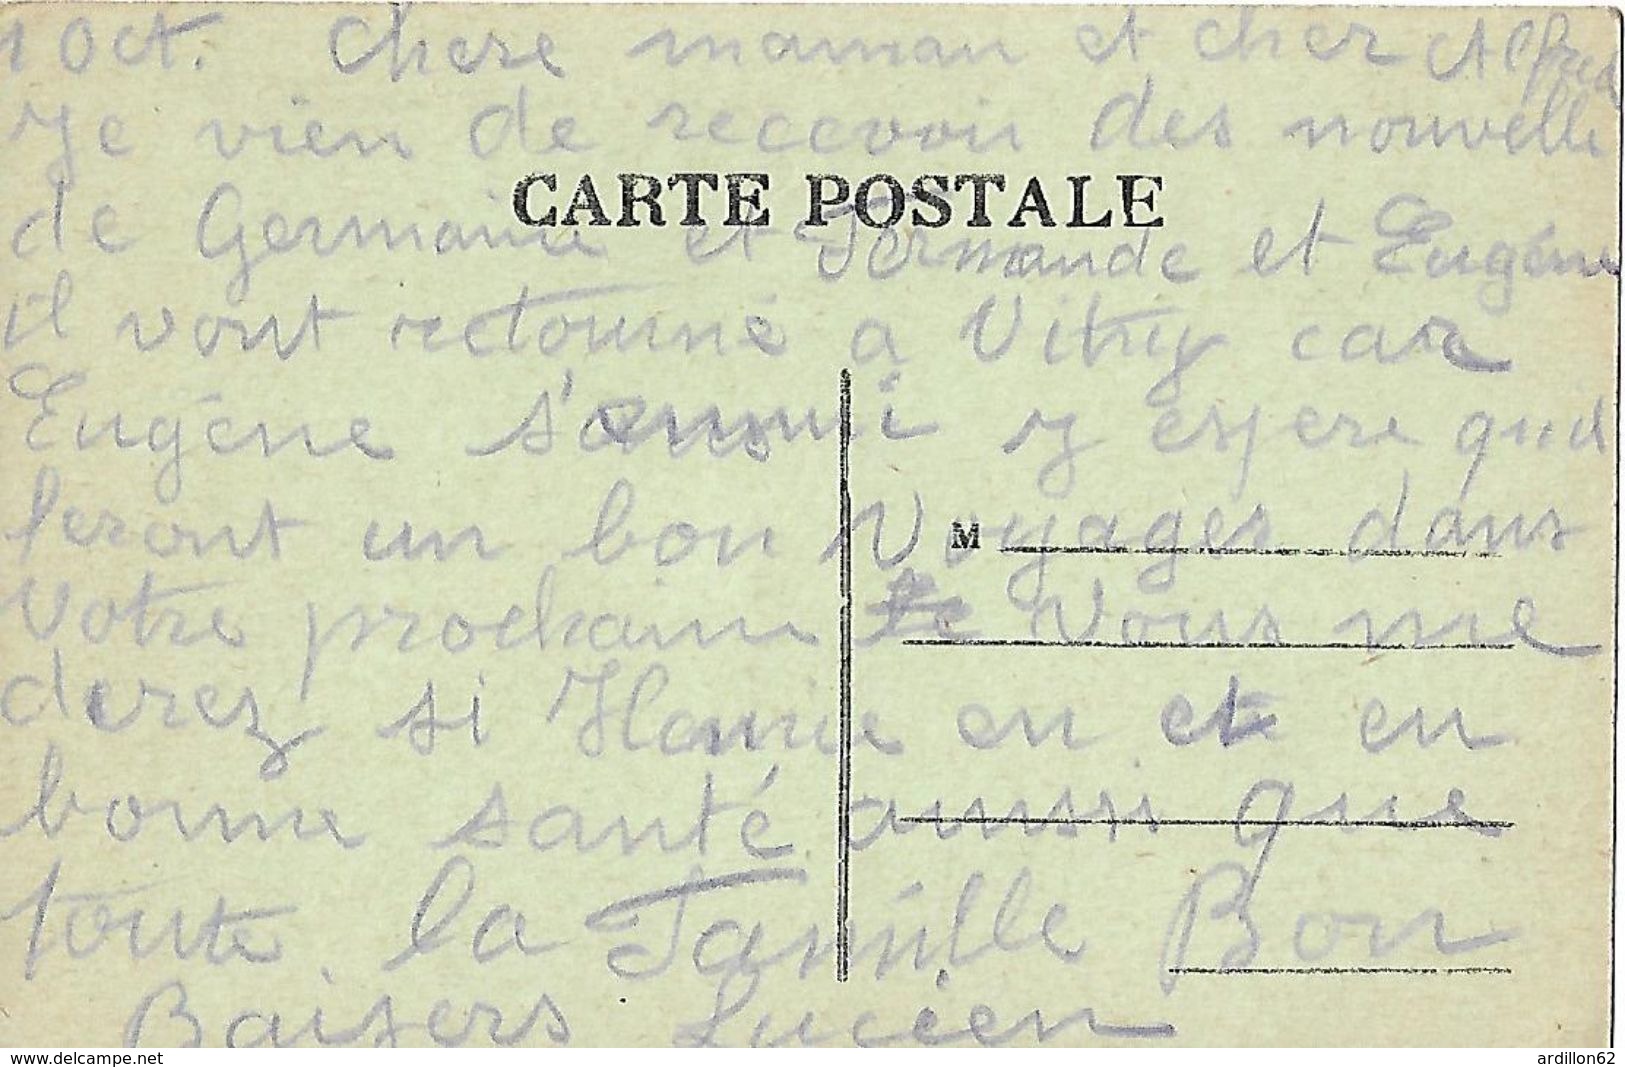 1 Oct. Chere maman et cher Alfred
Je vien de recevoir des nouvelle
CARTE POSTALE
de Germaine et Fernande et Eugéne
il vont retourné a Vitry car
Eugéne s'ennui j espere quil
feront un bon Voyages dans
M
Votre prochaine Vous me
direz si Henrie en et en
bonne santé aussi que
toute la Famille Bon
Baisers Lucien
ardillon62
www.delcampe.net